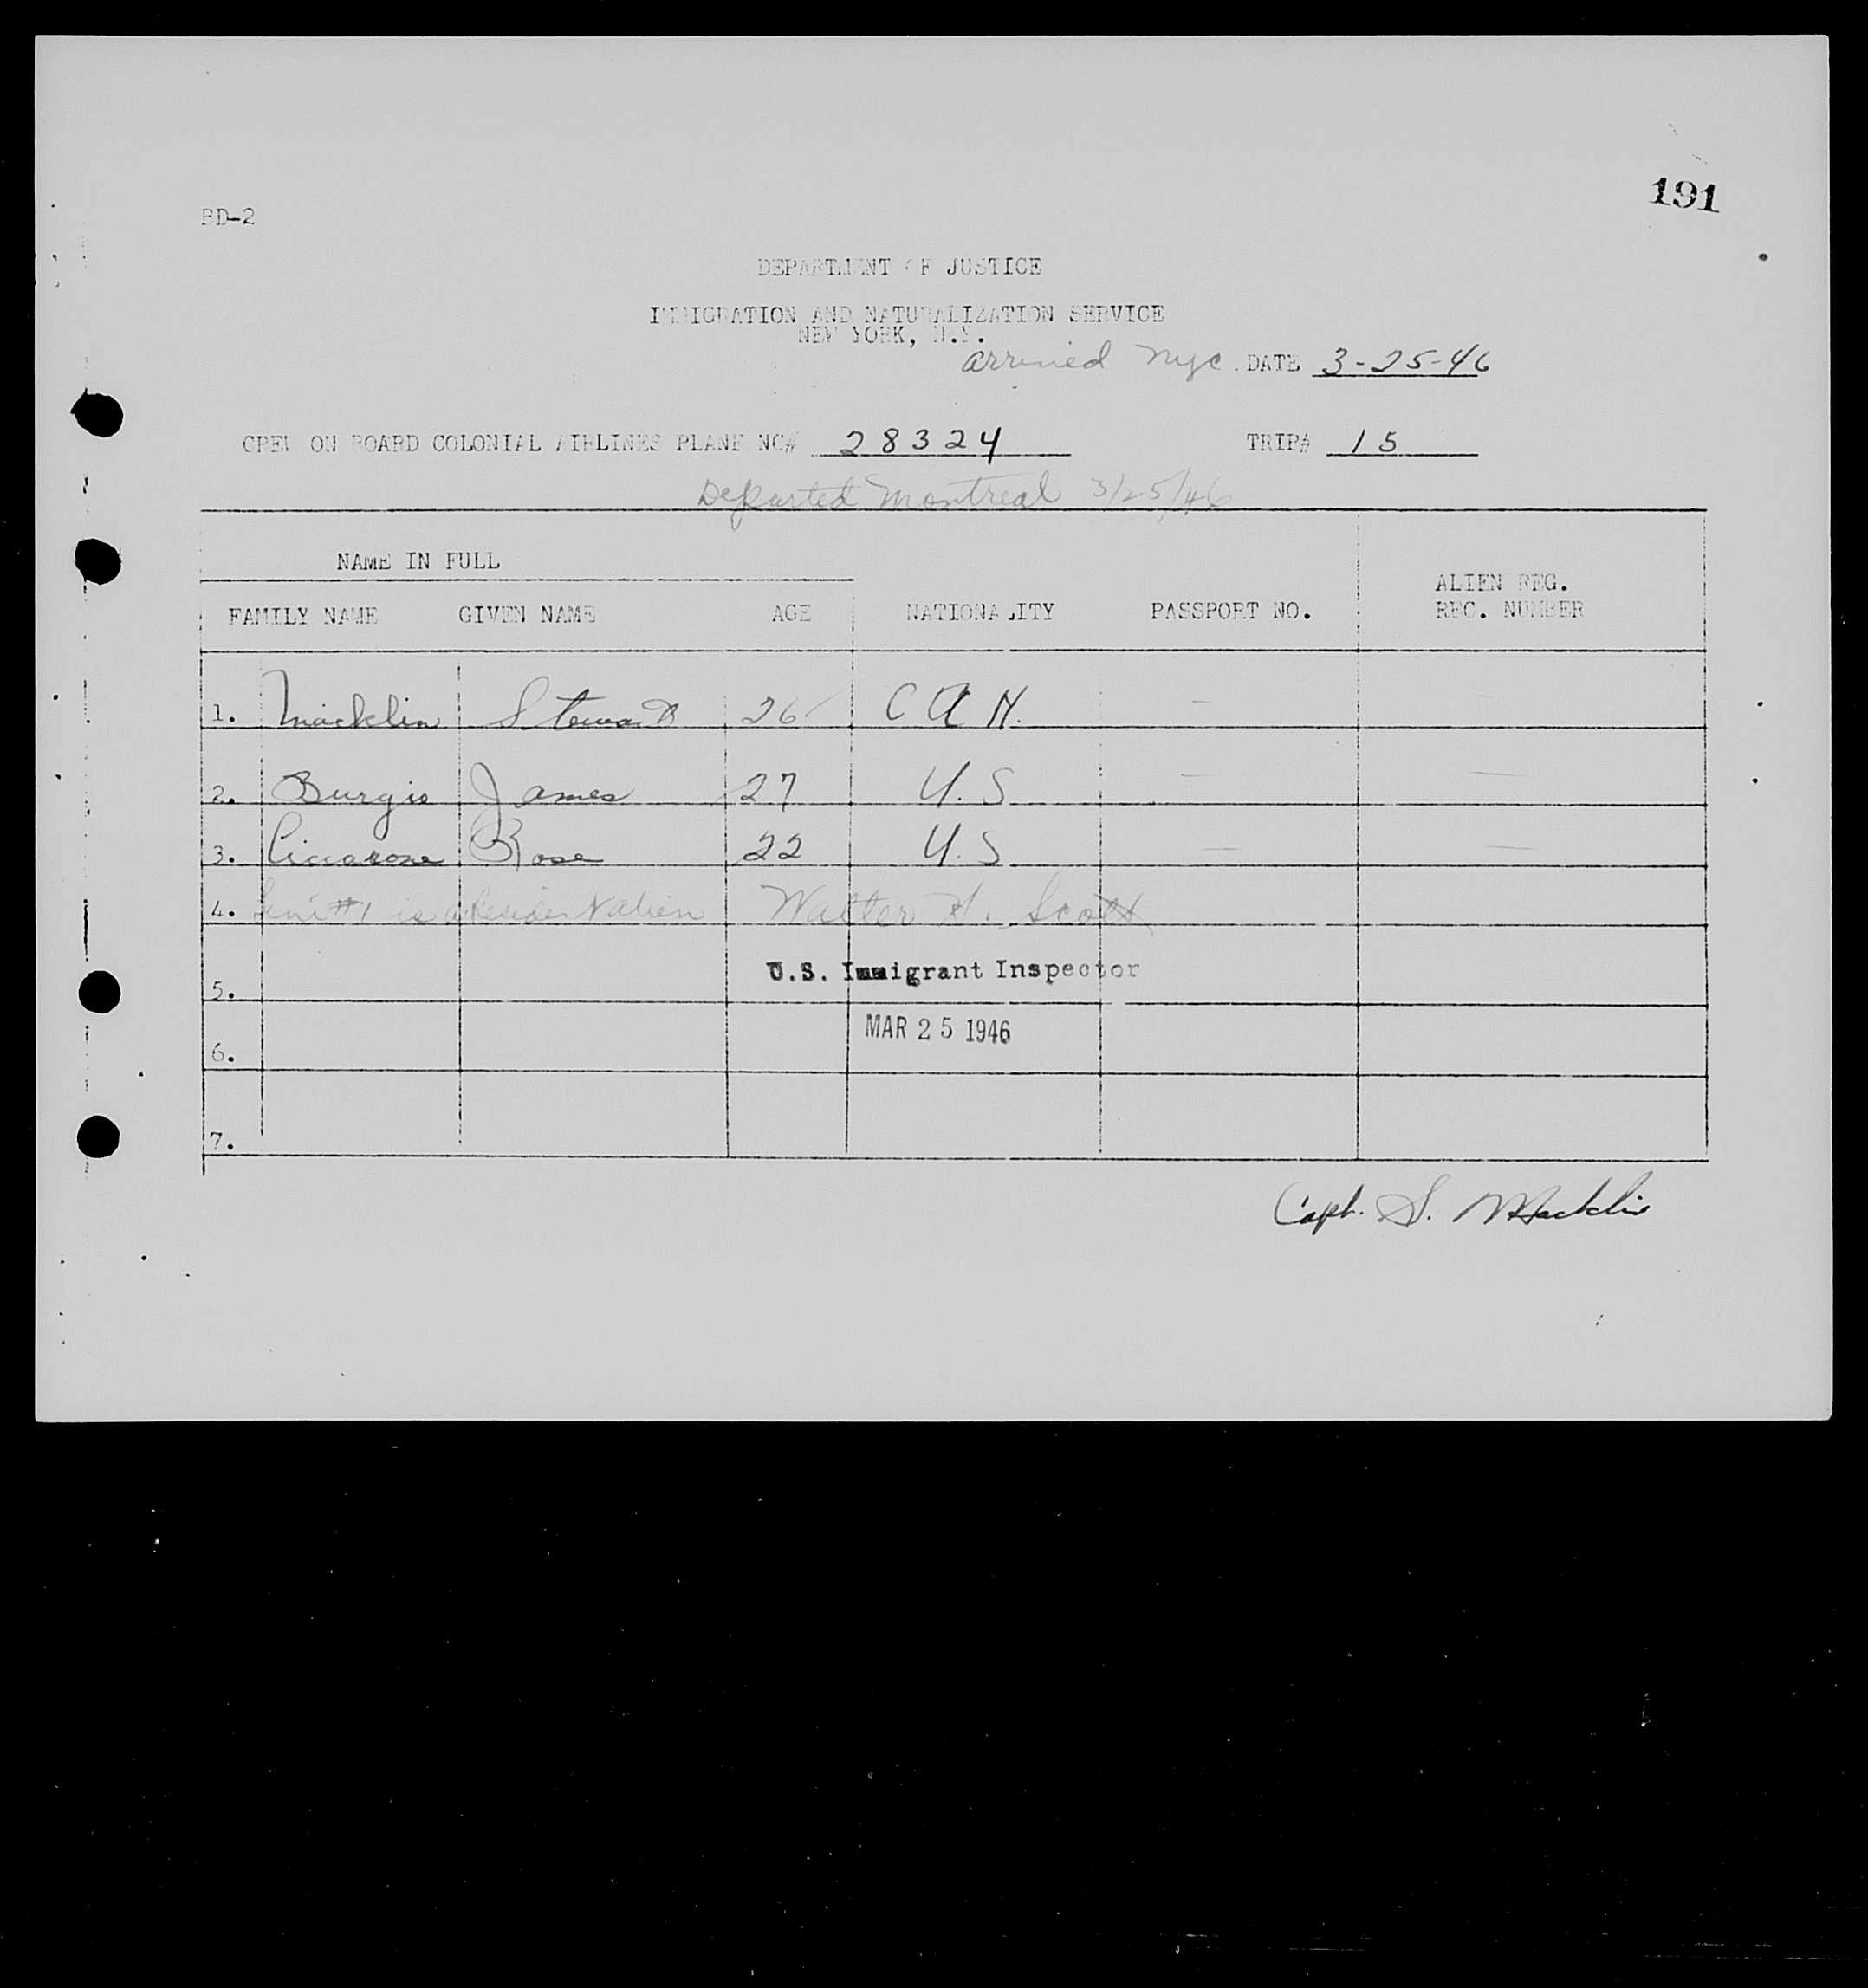 191
BD-2
DEPARTMENT OF JUSTICE
IMMIGRATION AND NATURALIZATION SERVICE
NEW YORK, N.Y.
arrived NYC. DATE 3-25-46
CREW ON BOARD COLONIAL AIRLINES PLANE NC# 28324 TRIP# 15
Departed Montreal 3/25/46
NAME IN FULL
FAMILY NAME GIVEN NAME AGE NATIONALITY PASSPORT NO. ALIEN REG. REC. NUMBER
1. Macklin Stewart 26 CAN. —
2. Burgis James 27 U.S — —
3. Ciccarone Rose 22 U.S — —
4. #1 is a Resident alien Walter H. Scott
U.S. Immigrant Inspector
5.
MAR 25 1946
6.
7.
Capt. S. Macklin